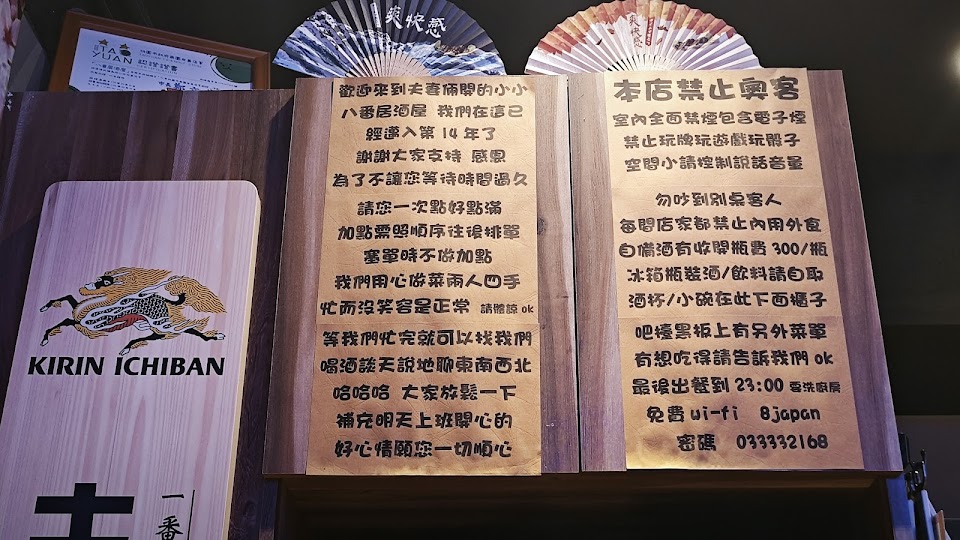 TAO
YUAN
認證證書
爽快感
爽快感
KIRIN ICHIBAN
一番
歡迎來到夫妻倆開的小小
八番居酒屋 我們在這已
經邁入第 14 年了
謝謝大家支持 感恩
為了不讓您等待時間過久
請您一次點好點滿
加點需照順序往後排單
塞單時不做加點
我們用心做菜兩人四手
忙而沒笑容是正常 請體諒 ok
等我們忙完就可以找我們
喝酒談天說地聊東南西北
哈哈哈 大家放鬆一下
補充明天上班開心的
好心情願您一切順心
本店禁止奧客
室內全面禁煙包含電子煙
禁止玩牌玩遊戲玩骰子
空間小請控制說話音量
勿吵到別桌客人
每間店家都禁止內用外食
自備酒有收開瓶費 300/瓶
冰箱瓶裝酒/飲料請自取
酒杯/小碗在此下面櫃子
吧檯黑板上有另外菜單
有想吃得請告訴我們 ok
最後出餐到 23:00 要洗廚房
免費 wi-fi 8japan
密碼 033332168